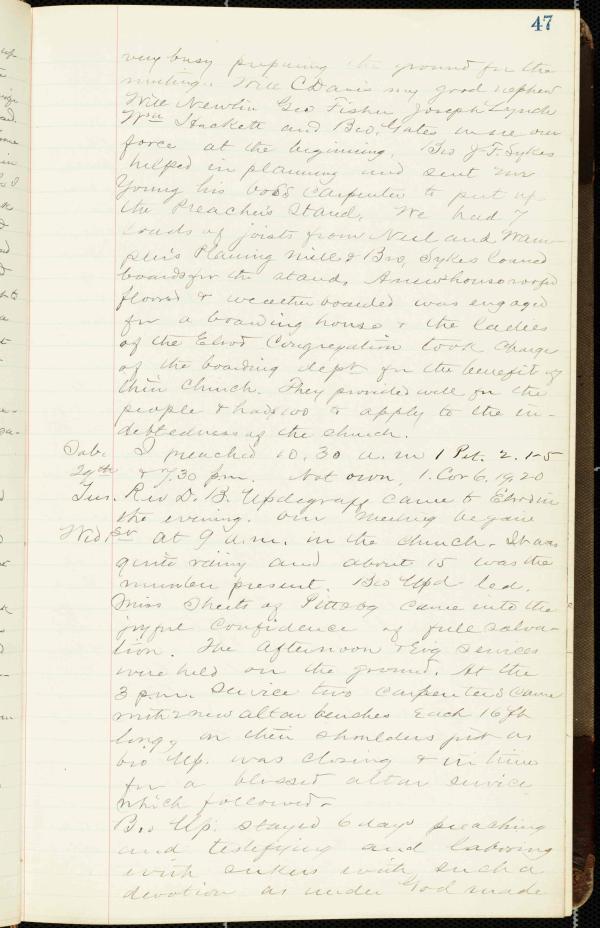 47
very busy preparing the ground for the
meeting. Will C Davis my good nephew
Will Newlin Geo Fisher Joseph Lynch
Wm Hackett and Bro. Gates were our
force at the beginning. Bro J. T. Sykes
helped in planning and sent Mr
Young his boss carpenter to put up
the Preachers Stand. We had 7
loads of joists from Neel and Wam-
pler's Planing mill & Bro. Sykes loaned
boards for the stand. A new house roofed
floored & weather boarded was engaged
for a boarding house & the ladies
of the Elrod Congregation took charge
of the boarding dept for the benefit of
their church. They provided well for the
people & had to apply to the in-
debtedness of the church.
Sab. I preached 10.30 a.m 1 Pet. 2. 1-5
29th & 7.30 pm. Not own, 1. Cor 6, 19, 20
Tus. Rev D. B. Updegraff came to Elrod in
the evening. Our meeting began
Wed. 1st at 9 a.m. in the church. It was
quite rainy and about 15 was the
number present. Bro Upd- led.
Miss Sheets of Pittsbg came into the
joyful confidence of full salva-
tion. The afternoon & Evg services
were held on the ground. At the
3 p.m. service two carpenters came
with 2 new altar benches each 16 ft
long, on their shoulders just as
bro Up. was closing & in time
for a blessed altar service
which followed-
Bro Up. stayed 6 days preaching
and testifying and laboring
with sekers with such a
devotion as under God made